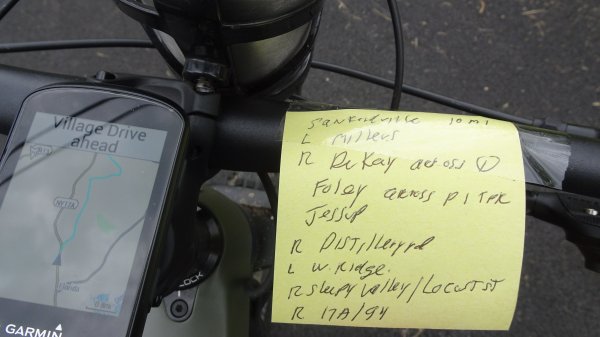 Village Drive
ahead
NY17A
Florida
GARMIN
LOCK
10 mi
L Millers
R DeKay across ①
Foley across PI TPK
Jessup
R Distillery rd
L W. Ridge.
R Sleepy Valley/Locust St
R 17A/94